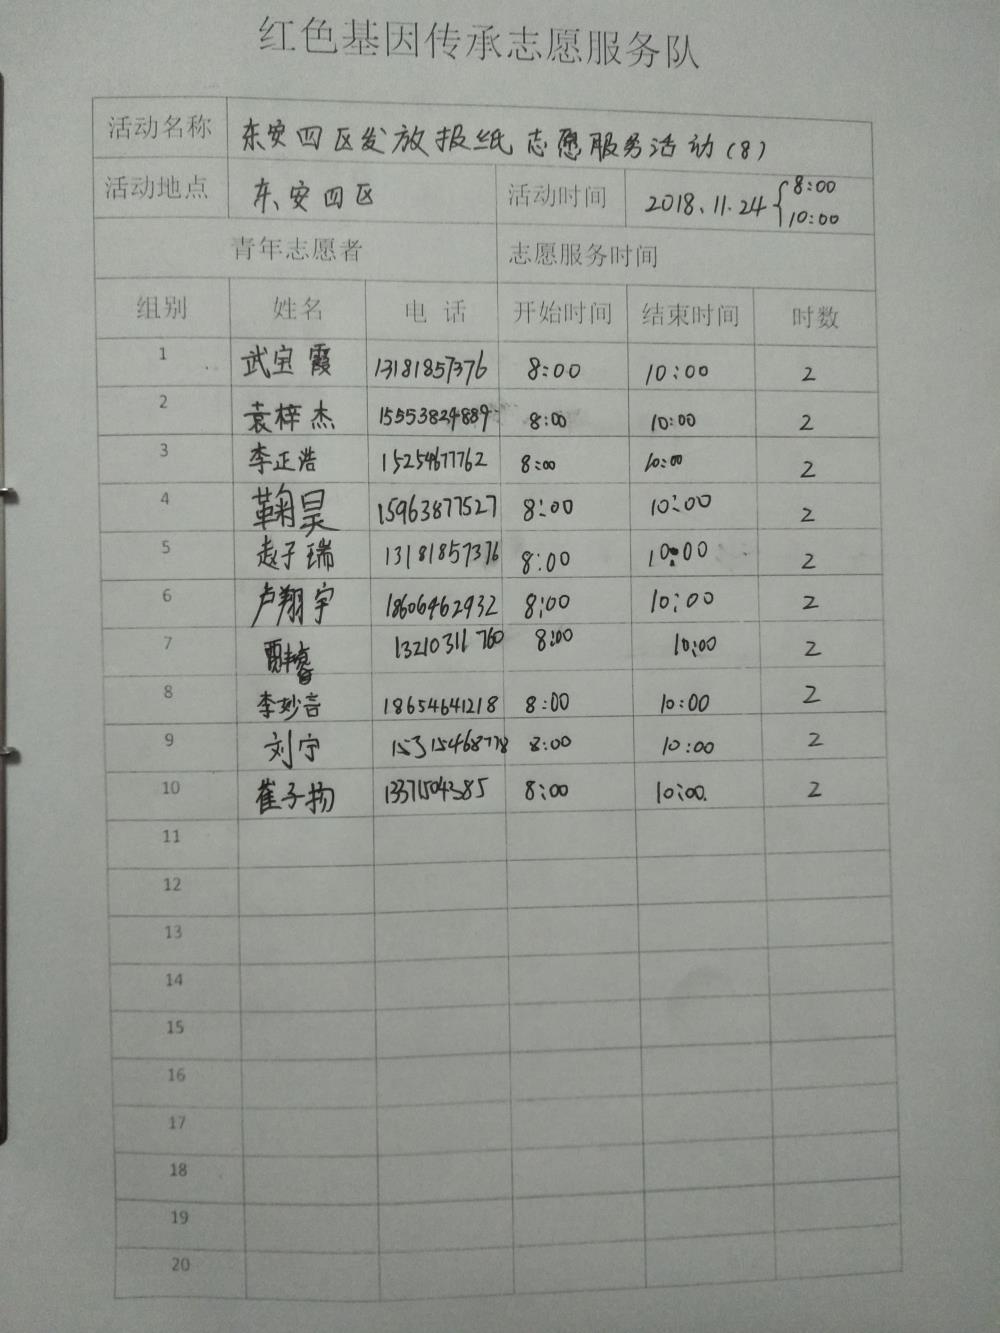 红色基因传承志愿服务队
活动名称 东安四区发放报纸志愿服务活动(8)
活动地点 东安四区 活动时间 2018.11.24 { 8:00 10:00
青年志愿者 志愿服务时间
组别 姓名 电话 开始时间 结束时间 时数
1 武宝霞 13181857376 8:00 10:00 2
2 袁梓杰 15553824889 8:00 10:00 2
3 李正浩 15254677762 8:00 10:00 2
4 鞠昊 15963877527 8:00 10:00 2
5 赵子瑞 13181857376 8:00 10:00 2
6 卢翔宇 18606462932 8:00 10:00 2
7 13210311760 8:00 10:00 2
8 李妙言 18654641218 8:00 10:00 2
9 刘宁 15315468778 8:00 10:00 2
10 崔子扬 13371504385 8:00 10:00. 2
11
12
13
14
15
16
17
18
19
20